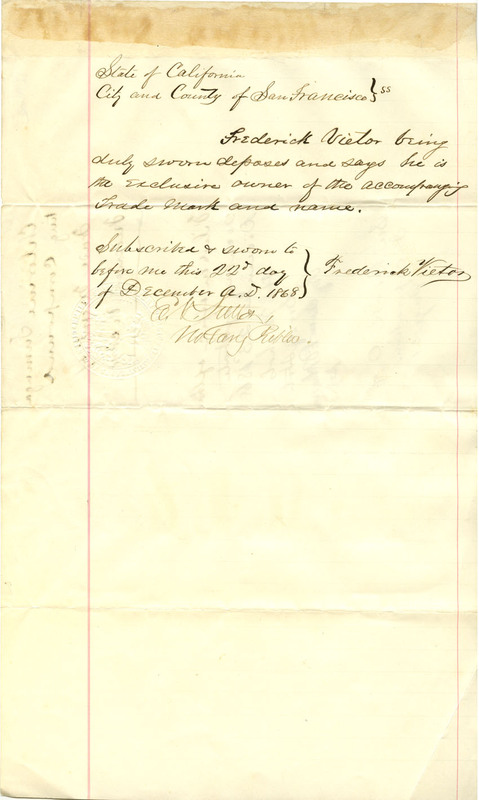 State of California
City and County of San Francisco } ss
Frederick Vietor being
duly sworn deposes and says he is
the exclusive owner of the accompanying
Trade Mark and name.
Subscribed & sworn to
before me this 22d day
of December A.D. 1868 }
Frederick Vietor
Notary Public.